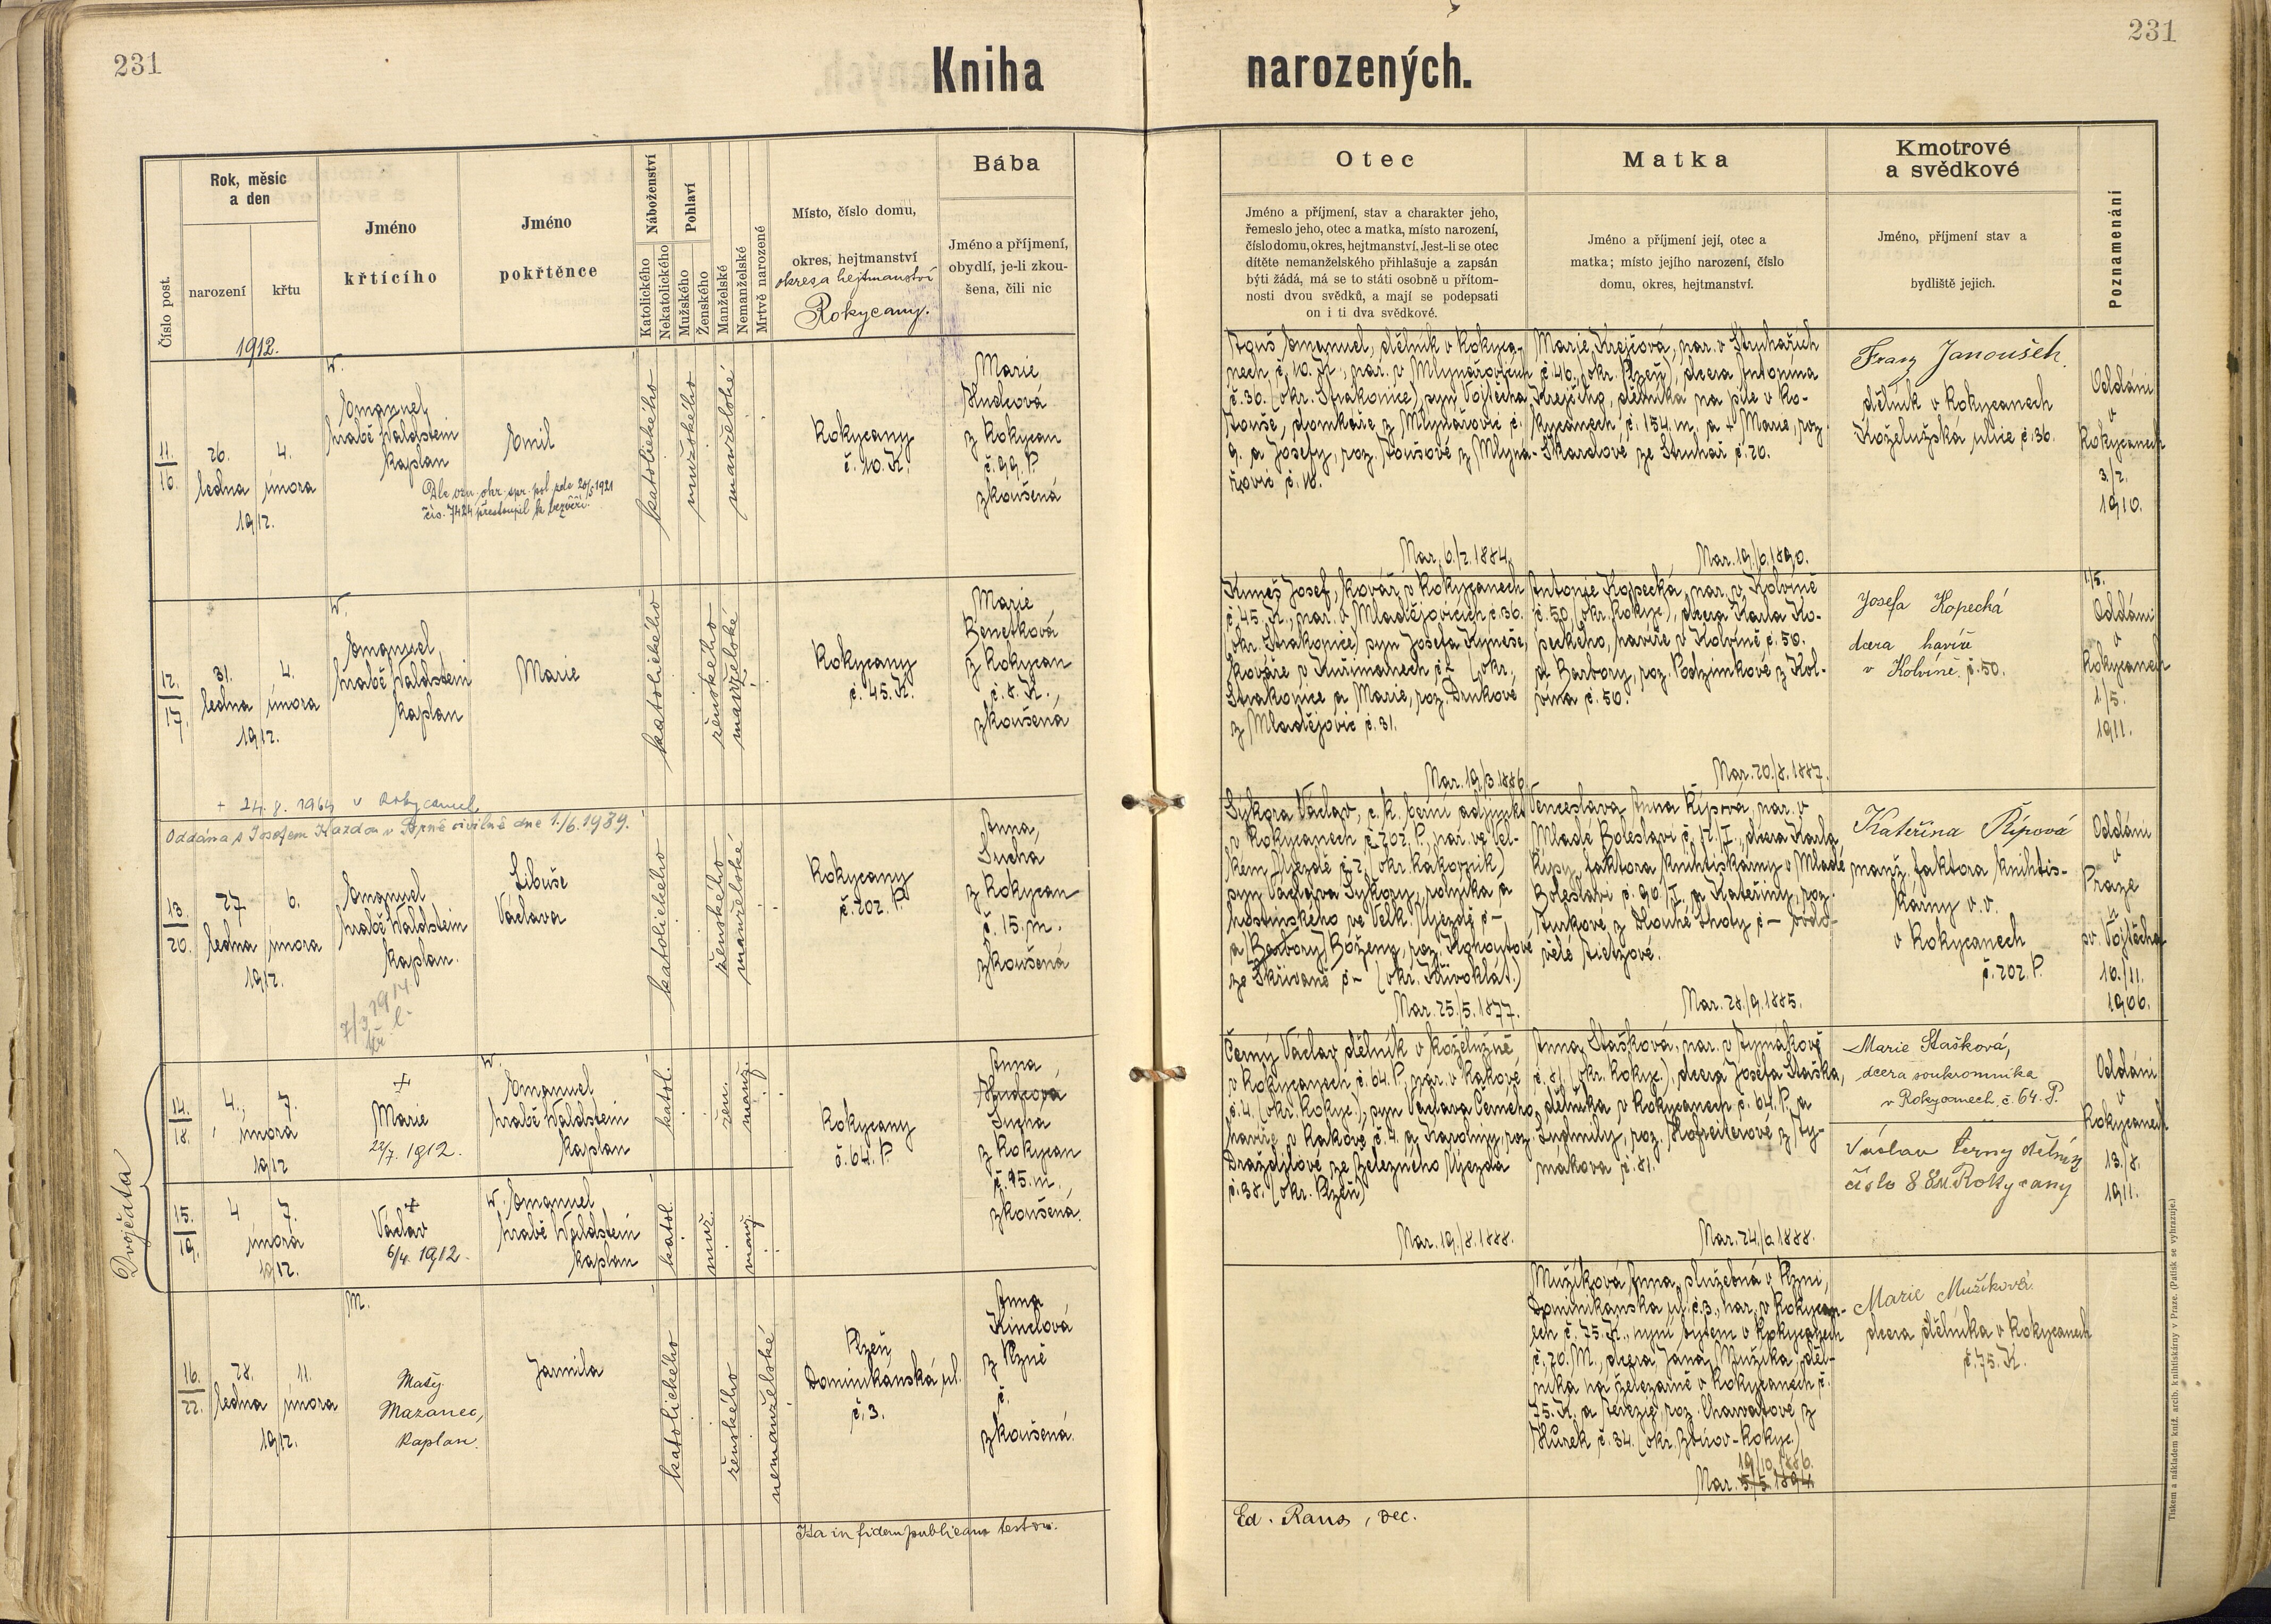 231
231
Kniha narozených.
Číslo post.
Rok, měsíc
a den
narození
křtu
Jméno
křtícího
Jméno
pokřtěnce
Náboženství
Katolického
Nekatolického
Pohlaví
Mužského
Ženského
Manželské
Nemanželské
Mrtvě narozené
Místo, číslo domu,
okres, hejtmanství
okres a hejtmanství
Rokycany.
Bába
Jméno a příjmení,
obydlí, je-li zkou-
šena, čili nic
Otec
Jméno a příjmení, stav a charakter jeho,
řemeslo jeho, otec a matka, místo narození,
číslo domu, okres, hejtmanství. Jest-li se otec
dítěte nemanželského přihlašuje a zapsán
býti žádá, má se to státi osobně u přítom-
nosti dvou svědků, a mají se podepsati
on i ti dva svědkové.
Matka
Jméno a příjmení její, otec a
matka; místo jejího narození, číslo
domu, okres, hejtmanství.
Kmotrové
a svědkové
Jméno, příjmení stav a
bydliště jejich.
Poznamenání
1912.
11.
16.
26.
ledna
4.
února
1912.
W.
Emanuel,
hrabě Waldstein
kaplan
Emil
čís. 7424 přestoupil k bezvěří.
katolického
mužského
manželské
Rokycany
č. 10. K.
Marie
Hudcová
z Rokycan
č. 99. P.
zkoušená
Touš Emanuel, dělník v Rokyca-
nech č. 10. K., nar. v Mlynařovicích
č. 36. (okr. Strakonice), syn Vojtěcha
Touše, domkáře z Mlynařovic č.
9. a Josefy, roz. Toušové z Mlyna-
řovic č. 18.
Nar. 6./2. 1884.
Marie Krejčová, nar. v Struhařích
č. 46. (okr. Plzeň), dcera Antonína
Krejčího, dělníka na pile v Ro-
kycanech č. 154. m. a + Marie, roz.
Škardové ze Struhař č. 20.
Nar. 19./6. 1890.
Franz Janoušek.
dělník v Rokycanech
Koželužská ulice č. 36.
Oddáni
v
Rokycanech
3./2.
1910.
12.
17.
31.
ledna
4.
února
1912.
W.
Emanuel,
hrabě Waldstein
kaplan
Marie
katolického
ženského
manželské
Rokycany
č. 45. K.
Marie
Benetková
z Rokycan
č. 8. K.,
zkoušená
Kuneš Josef, kovář v Rokycanech
č. 45. K., nar. v Mladějovicích č. 36.
(okr. Strakonice) syn Josefa Kuneše,
kováře v Kuřimanech č. 2 (okr.
Strakonice a Marie, roz. Drnkové
z Mladějovic č. 31.
Nar. 19./3. 1886.
Antonie Kopecká, nar. v Kolvíně
č. 50, (okr. Rokyc.), dcera Karla Ko-
peckého, havíře v Kolvíně č. 50.
a Barbory, roz. Podzimkové z Kol-
vína č. 50.
Nar. 20./8. 1887.
Josefa Kopecká
dcera havíře
v Kolvíně č. 50.
1/5.
Oddáni
v
Rokycanech
1./5.
1911.
+ 24. 8. 1964 v Rokycanech
Oddána s Josefem Kazdou v Brně civilně dne 1./6. 1939.
13.
20.
27.
ledna
6.
února
1912.
Emanuel
hrabě Waldstein
kaplan.
7/3 1914
Libuše
Václava
katolického
ženského
manželské
Rokycany
č. 202. P.
Anna,
Suchá
z Rokycan
č. 15. m.
zkoušená
Sýkora Václav, c. k. berní adjunkt
v Rokycanech č. 202. P., nar. ve Vel-
kém Újezdě č. 2. (okr. Rakovník)
syn Václava Sýkory, rolníka a
hostinského ve Velk. Újezdě č –
a (Barbory) Boženy, roz. Kohoutové
ze Skřivaně č – (okr. Křivoklát.)
Nar. 25./5. 1877.
Venceslava Anna Řípová, nar. v
Mladé Boleslavi č. 12./I., dcera Karla
Řípy, faktora knihtiskárny v Mladé
Boleslavi č. 90./I. a Kateřiny, roz.
Turkové z Dlouhé Lhoty č –
Nar. 28./9. 1885.
Kateřina Řípová
manž. faktora knihtis-
kárny v. v.
v Rokycanech
č. 202. P.
Oddáni
v
Praze
u
sv. Vojtěcha
10./11.
1906.
Dvojčata
14.
18.
4.
7.
února
1912
+
Marie
22/7. 1912.
W.
Emanuel
hrabě Waldstein
kaplan
katol.
žen.
manž.
Rokycany
č. 64. P.
Anna
Hudcová
Suchá
z Rokycan
č. 15. m.,
zkoušená.
Černý Václav dělník v koželužně
v Rokycanech č. 64. P., nar. v Kakově
č. 4. (okr. Rokyc.), syn Václava Černého,
havíře v Kakově č. 4. a Karoliny, roz.
Draždilové ze Železného Újezda
č. 38. (okr. Plzeň)
Nar. 19./8. 1888.
Anna Stašková, nar. v Tymákově
č. 81. (okr. Rokyc.), dcera Josefa Staška,
dělníka v Rokycanech č. 64. P. a
Ludmily, roz. Hopfeiterové z Ty-
makova č. 81.
Nar. 24./6. 1888.
Marie Stašková,
dcera soukromníka
v Rokycanech. č. 64. P.
Václav Černý dělník
číslo 8 8M. Rokycany
Oddáni
v
Rokycanech
13./8.
1911.
15.
19.
4
7.
února
1912.
+
Václav
6/4. 1912.
W. Emanuel
hrabě Waldstein
kaplan
katol.
muž.
manž.
16.
22.
28.
ledna
11.
února
1912.
M.
Matěj
Mazanec,
kaplan.
Jarmila
katolického
ženského
nemanželské
Plzeň,
Dominikánská ul.
č. 3.
Anna
Kindlová
z Plzně
č.
zkoušená.
Mužíková Anna, služebná v Plzni,
Dominikánská ul. č. 3., nar. v Rokycan-
ech č. 75. K., nyní bytem v Rokycanech
č. 20. M., dcera Jana Mužíka, děl-
níka na železárně v Rokycanech č.
75. K. a Terezie, roz. Charvátové z
Hůrek č. 34. (okr. Zbirov-Rokyc.)
19/10. 1886.
Nar. 5./5. 1894.
Marie Mužíková.
dcera dělníka v Rokycanech
č. 75. K.
Ita in fidem publicam testor.
Ed. Rans, dec.
Tiskem a nákladem kníž. arcib. knihtiskárny v Praze. (Patisk se vyhrazuje.)